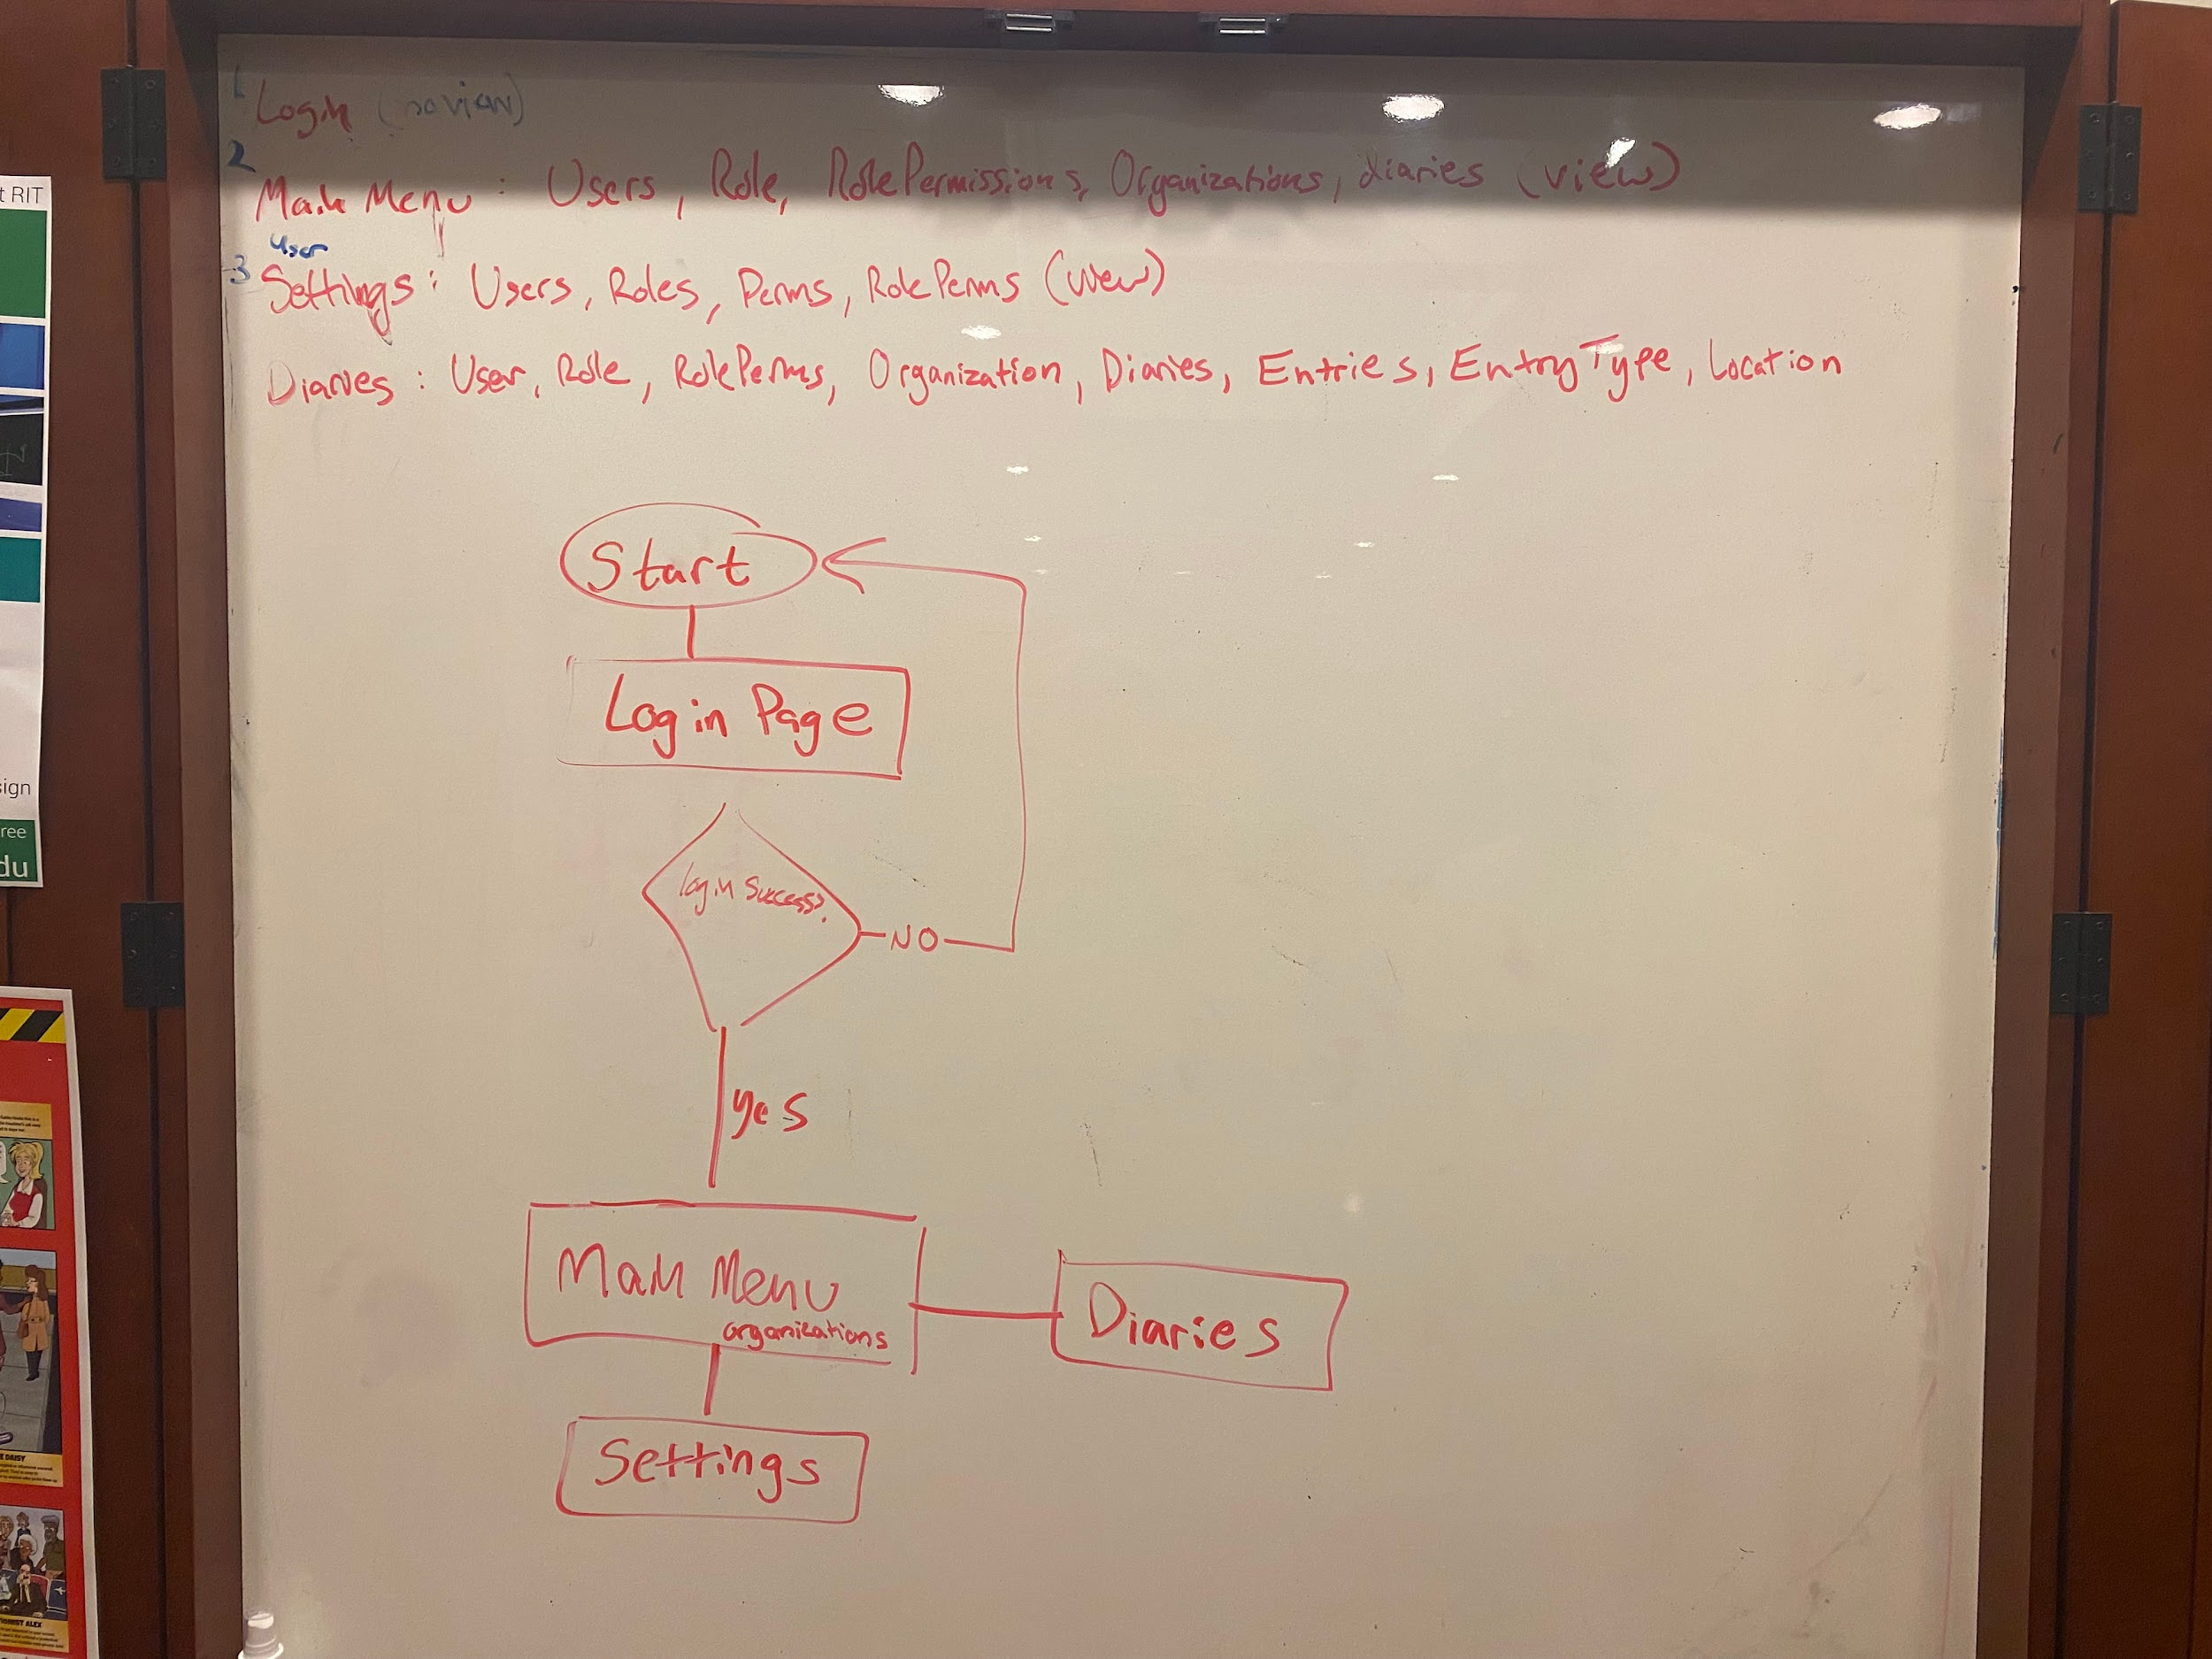 1 Login
2
Main Menu : Users, Role, RolePermissions, Organizations, diaries (view)
User
3 Settings : Users, Roles, Perms, RolePerms (view)
Diaries : User, Role, RolePerms, Organization, Diaries, Entries, EntryType, Location
Start
Login Page
login success?
NO
yes
Main Menu
organizations
Diaries
Settings
t RIT
sign
ree
du
DAISY
ALEX